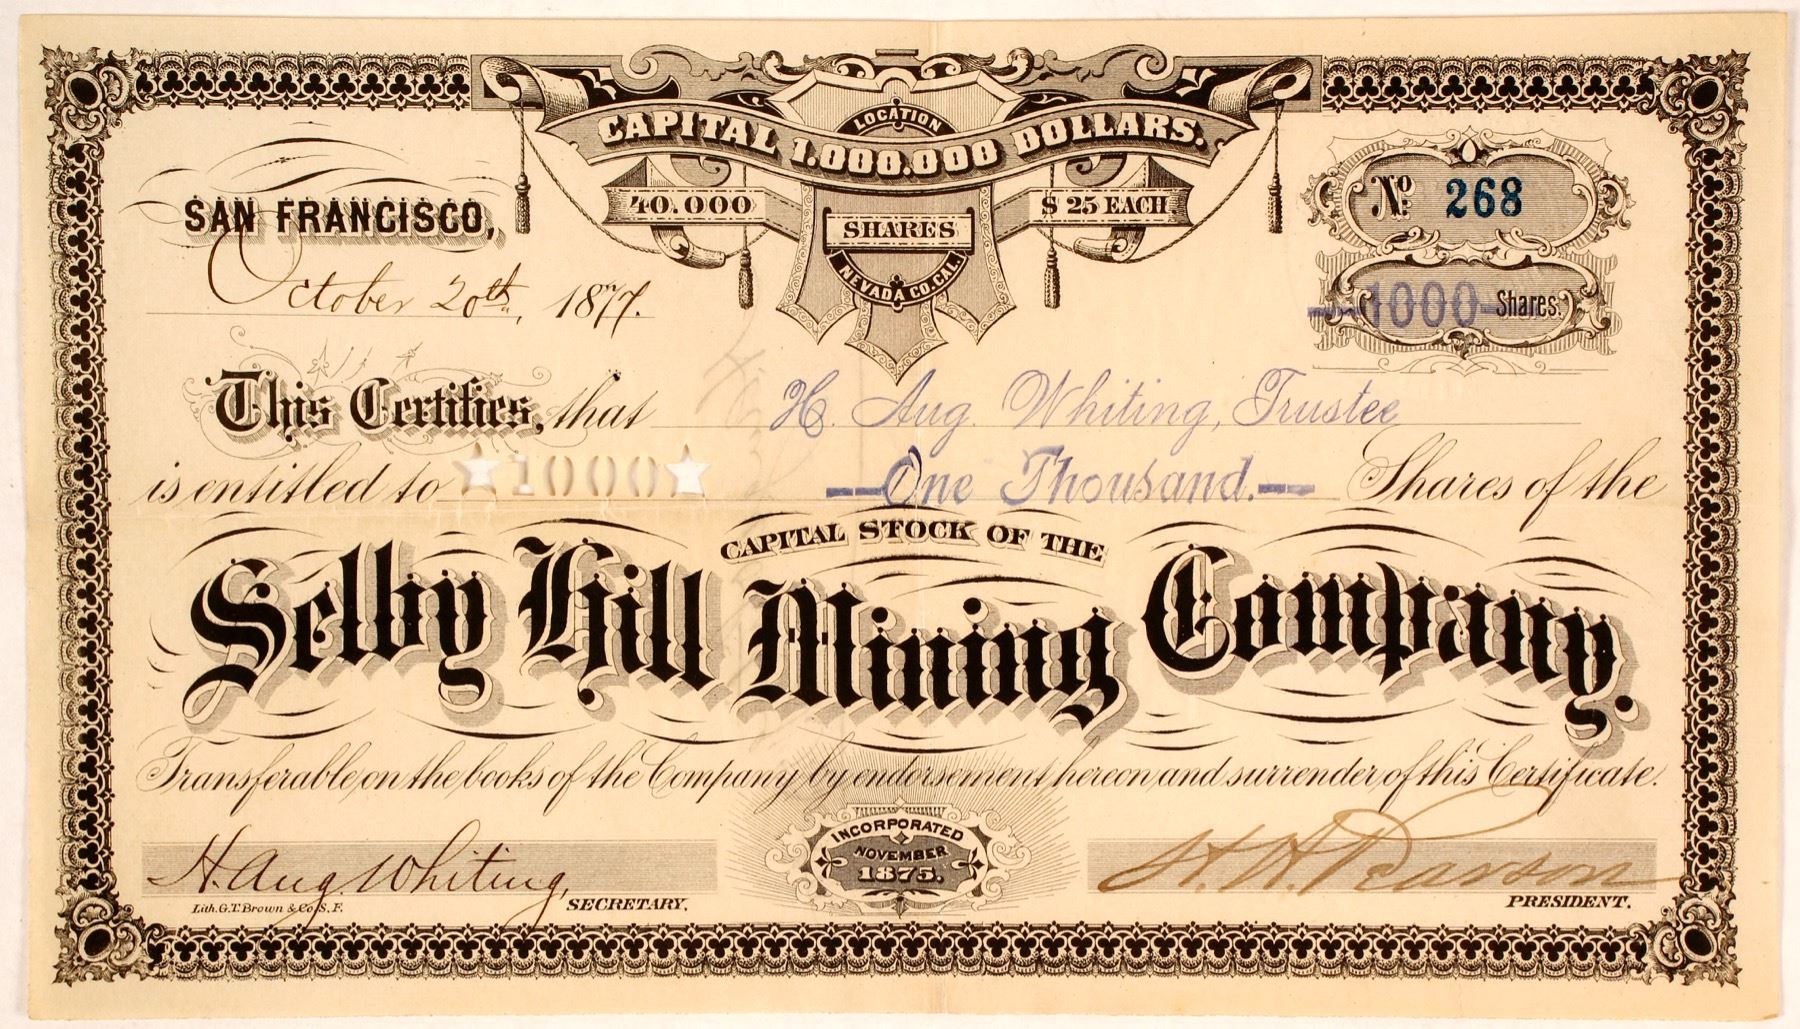 LOCATION
CAPITAL 1.000.000 DOLLARS.
40.000 SHARES $25 EACH
NEVADA CO. CAL.
No. 268
1000 Shares.
SAN FRANCISCO,
October 20th, 1877.
This Certifies, that H. Aug. Whiting, Trustee
is entitled to ★1000★ —One Thousand.— Shares of the
CAPITAL STOCK OF THE
Selby Hill Mining Company.
Transferable on the books of the Company by endorsement hereon and surrender of this Certificate.
INCORPORATED
NOVEMBER
1875.
H. Aug. Whiting, SECRETARY.
H. H. Pearson
PRESIDENT.
Lith. G.T. Brown & Co. S.F.